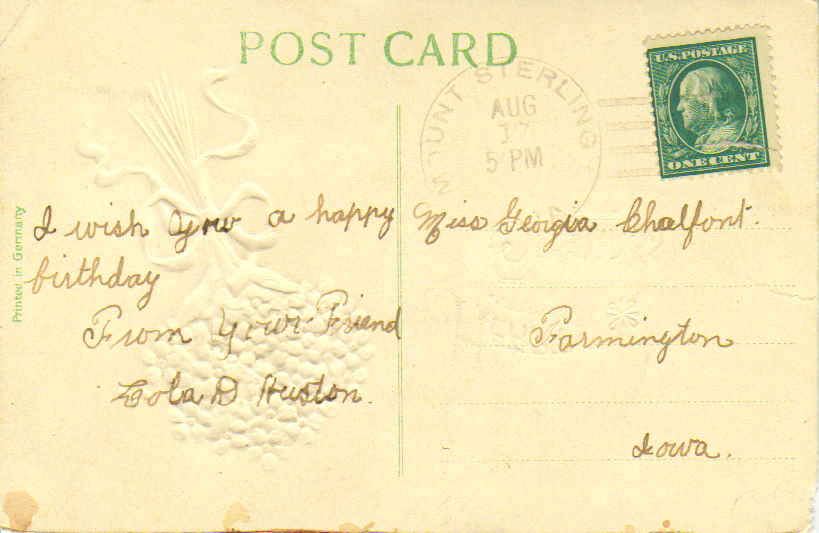 POST CARD
MOUNT STERLING
AUG
17
5 PM
U.S. POSTAGE
ONE CENT
Printed in Germany
I wish you a happy
birthday
From Your Friend
Lola D Huston.
Miss Georgia Chalfont.
Farmington
Iowa.